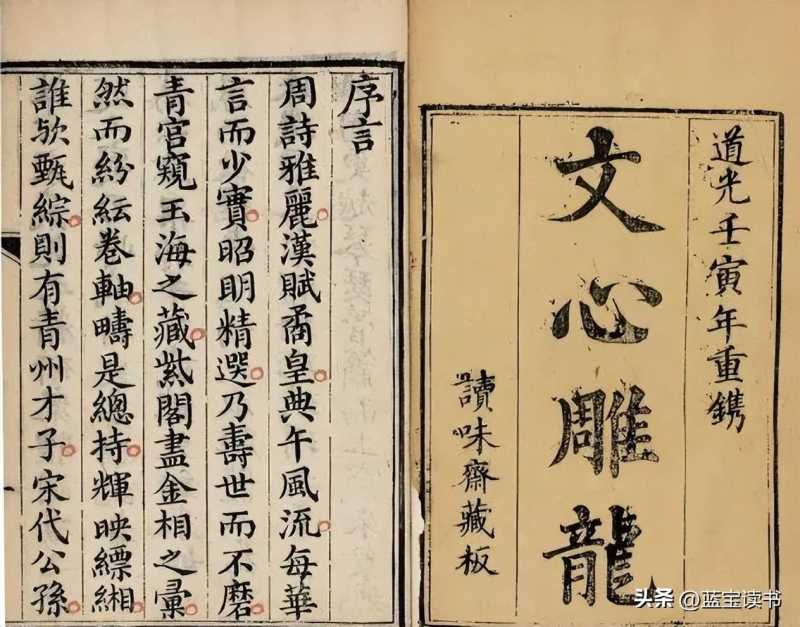 道光壬寅年重鐫
文心雕龍
讀味齋藏板
序言
周詩雅麗。漢賦矞皇。典午風流。每華
言而少實。昭明精選。乃壽世而不磨。
青官窺玉海之藏。紫閣盡金相之彙。
然而紛紜卷軸。疇是總持。輝映縹緗
誰欤甄綜。則有青州才子。宋代公孫。
头条 @蓝宝读书